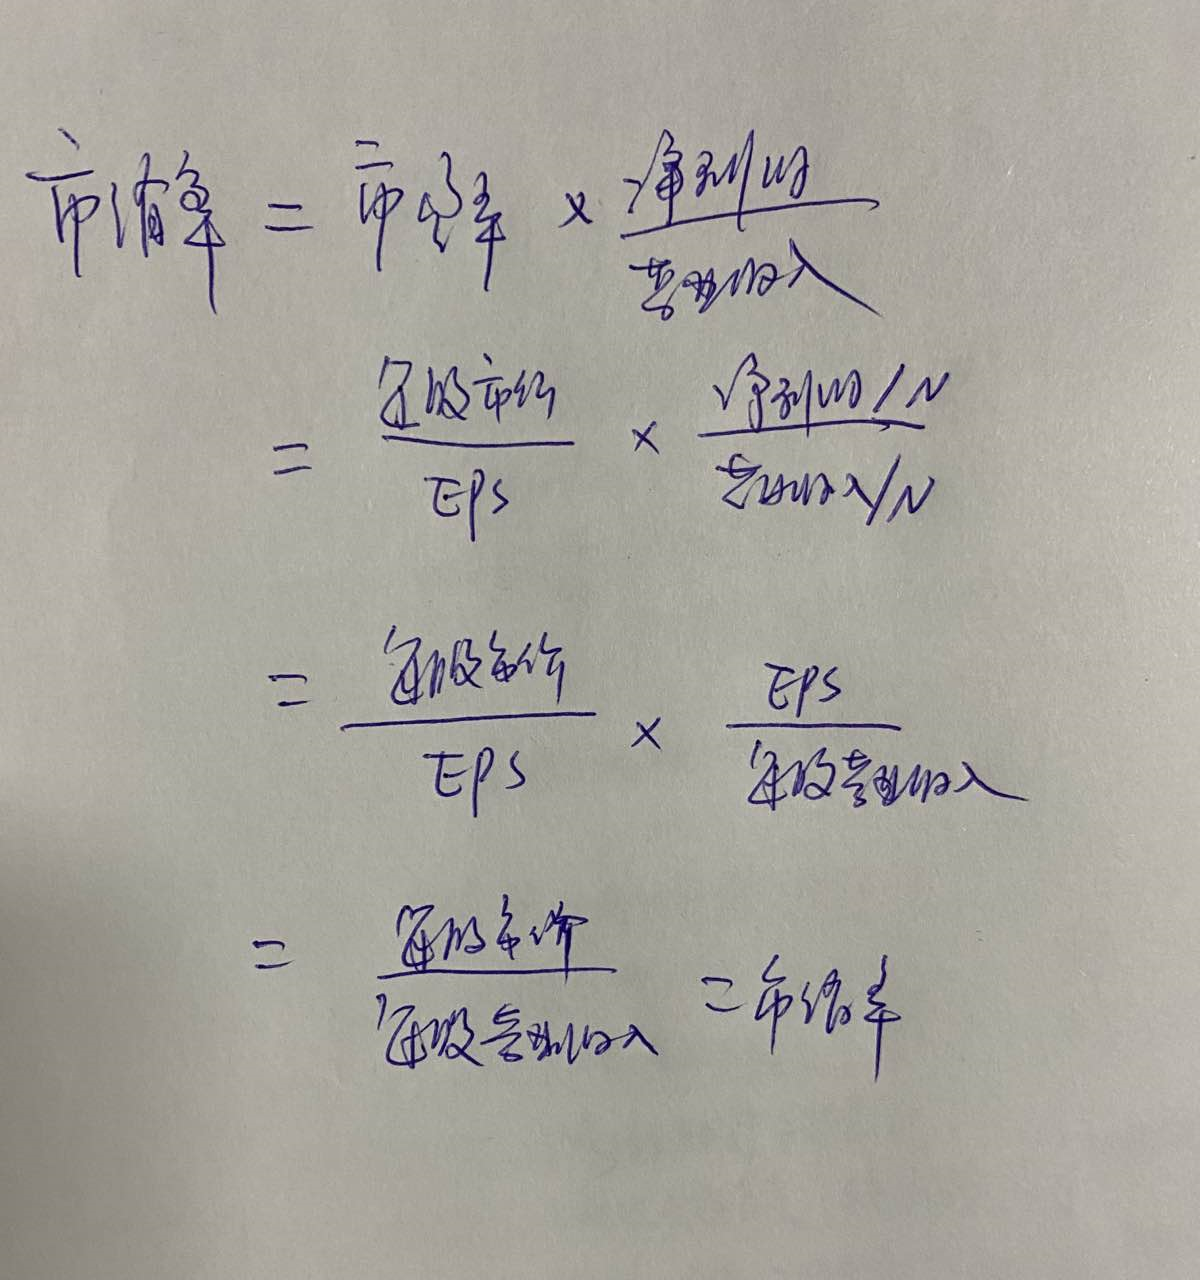 市销率 = 市盈率 × 净利润/营业收入
= 每股市价/EPS × 净利润/N/营业收入/N
= 每股市价/EPS × EPS/每股营业收入
= 每股市价/每股营业收入 = 市销率